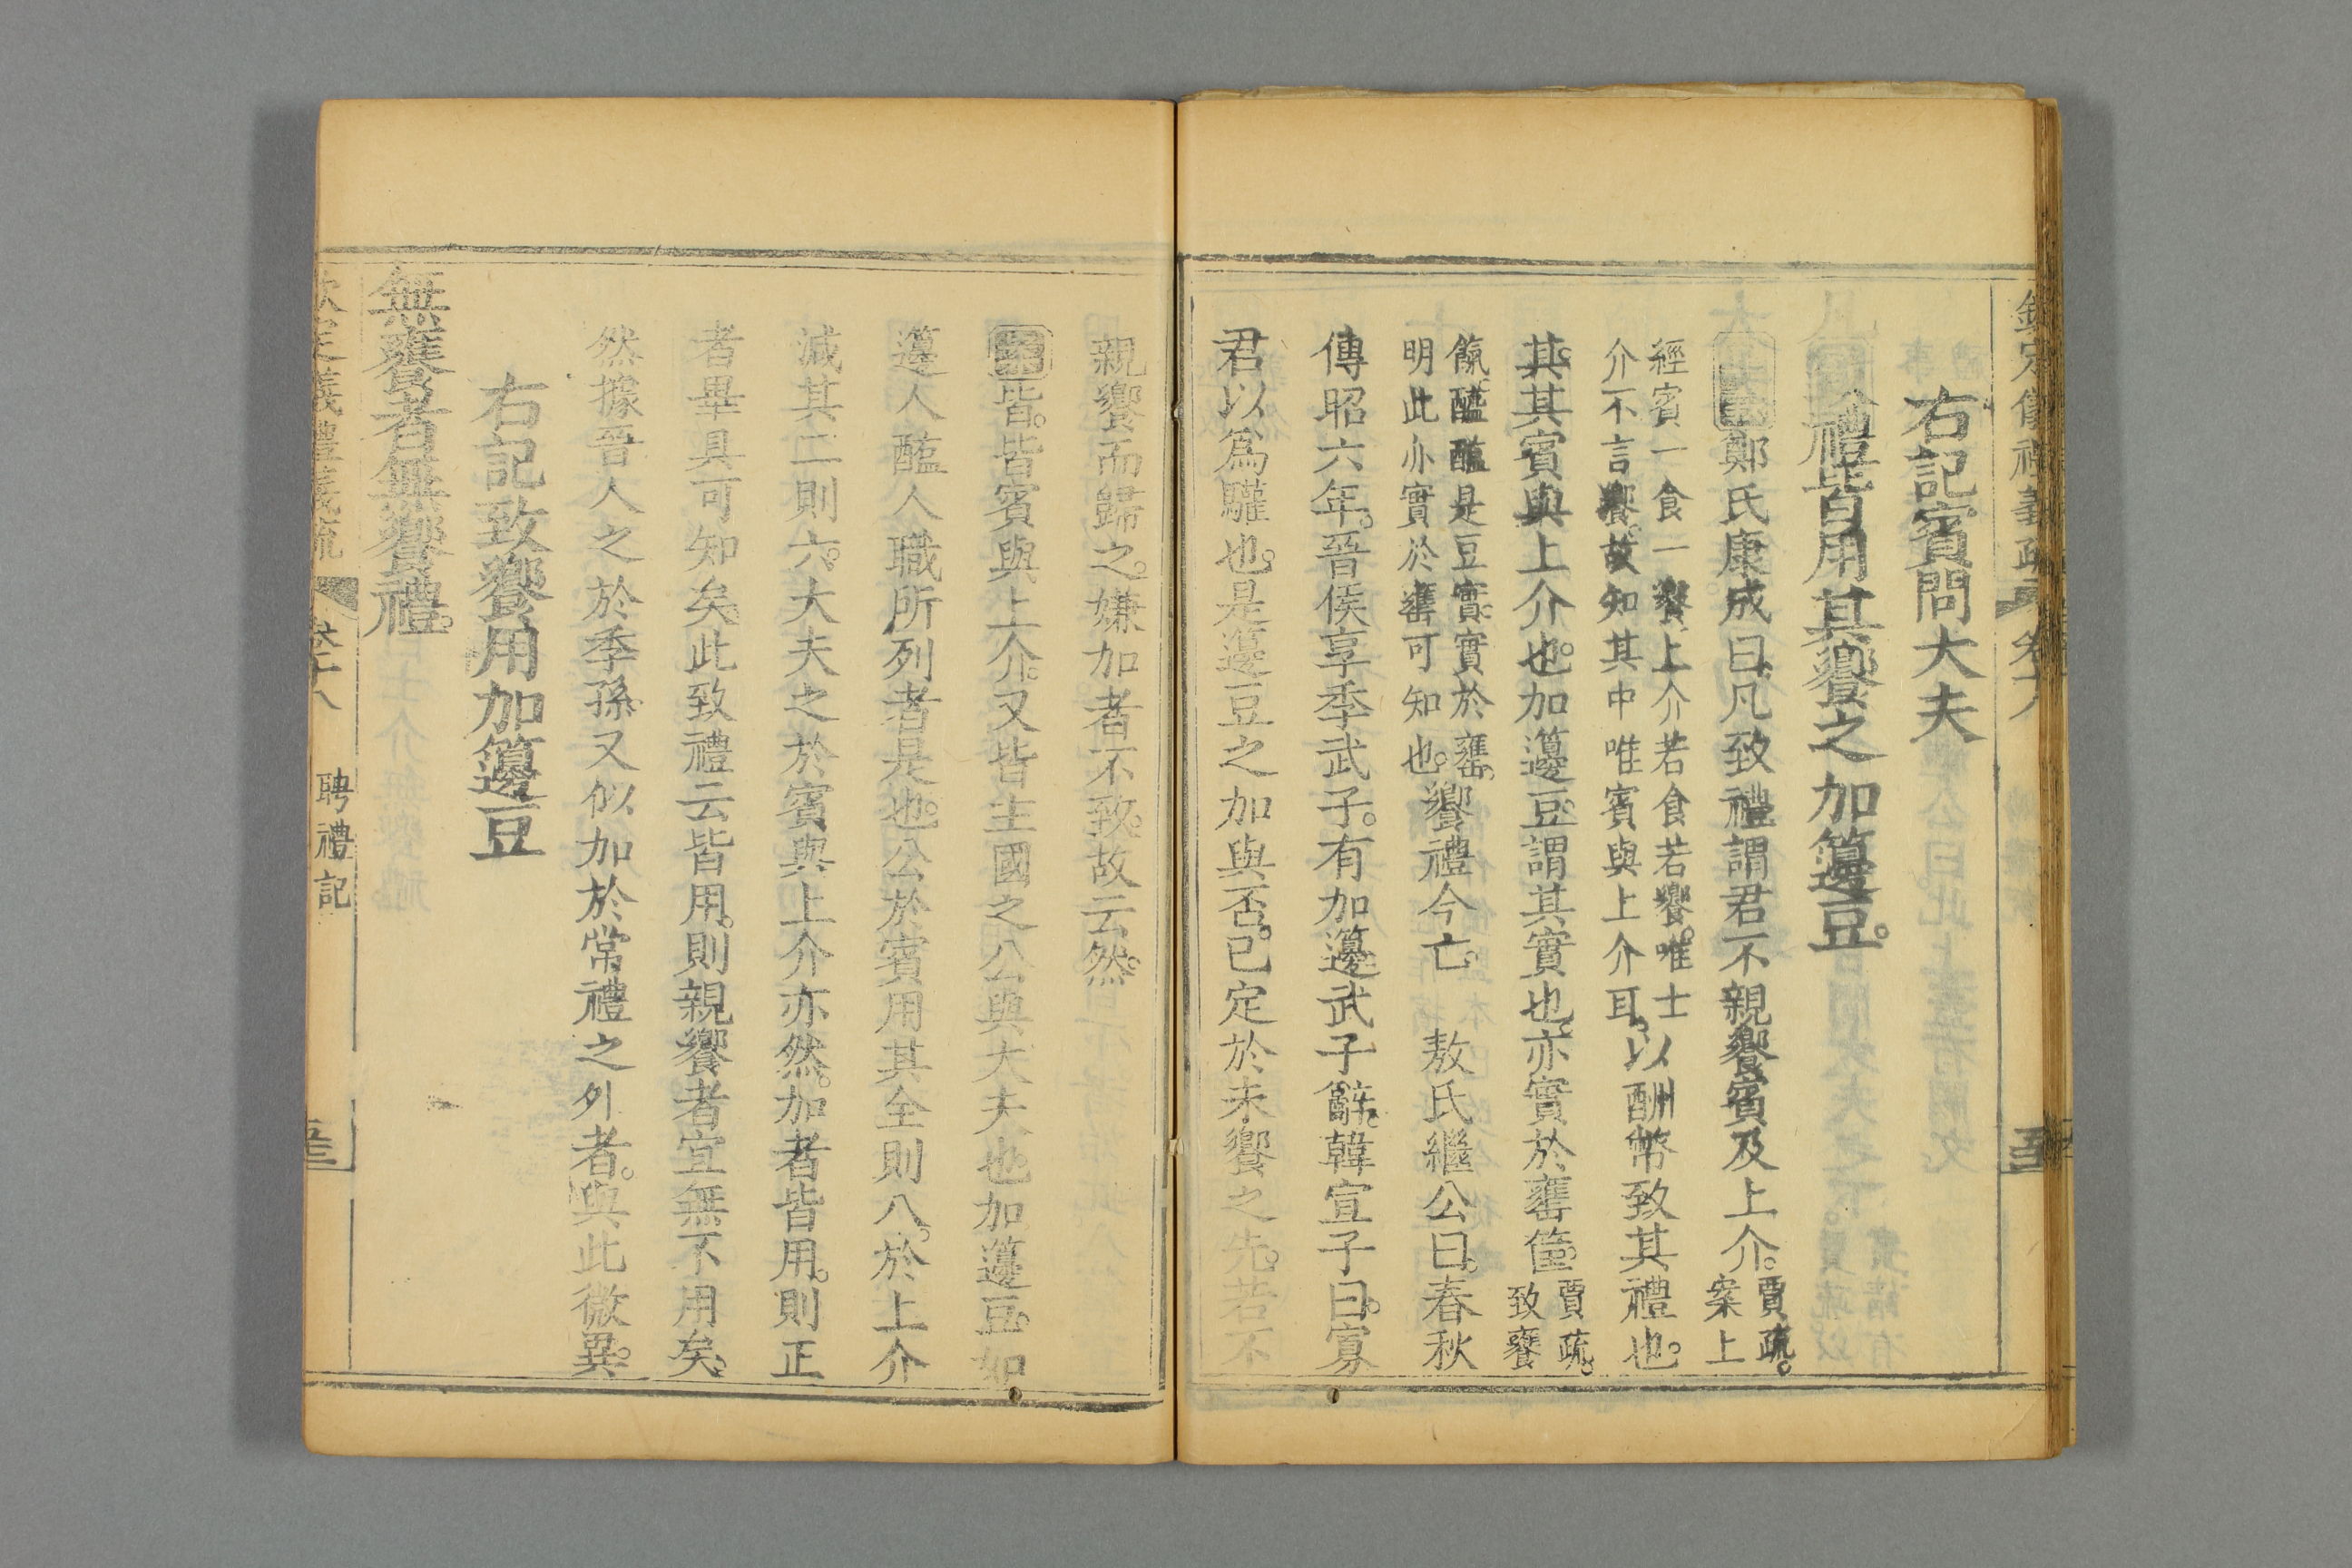 欽定儀禮義疏 卷十八
右記賓問大夫
凡致禮皆用其饗之加籩豆。
鄭氏康成曰。凡致禮謂君不親饗賓及上介。賈疏。案上
經賓一食一饗。上介若食若饗。唯士
介不言饗。故知其中唯賓與上介耳。以酬幣致其禮也。
其。其賓與上介也。加籩豆。謂其實也。亦實於罋筐。賈疏。致饔
餼。醯醢是豆實。實於罋。
明此亦實於罋可知也。饗禮今亡。 敖氏繼公曰。春秋
傳昭六年。晉侯享季武子。有加籩。武子辭。韓宣子曰。寡
君以爲驩也。是籩豆之加與否。已定於未饗之先。若不
親饗而歸之。嫌加者不致。故云然。
皆。皆賓與上介。又皆主國之公與大夫也。加籩豆。如
籩人醢人職所列者是也。公於賓用其全則八。於上介
減其二則六。大夫之於賓與上介亦然。加者皆用。則正
者畢具可知矣。此致禮云皆用。則親饗者宜無不用矣。
然據晉人之於季孫。又似加於常禮之外者。與此微異。
右記致饗用加籩豆
無饔者無饗禮。
欽定儀禮義疏 卷十八 聘禮記